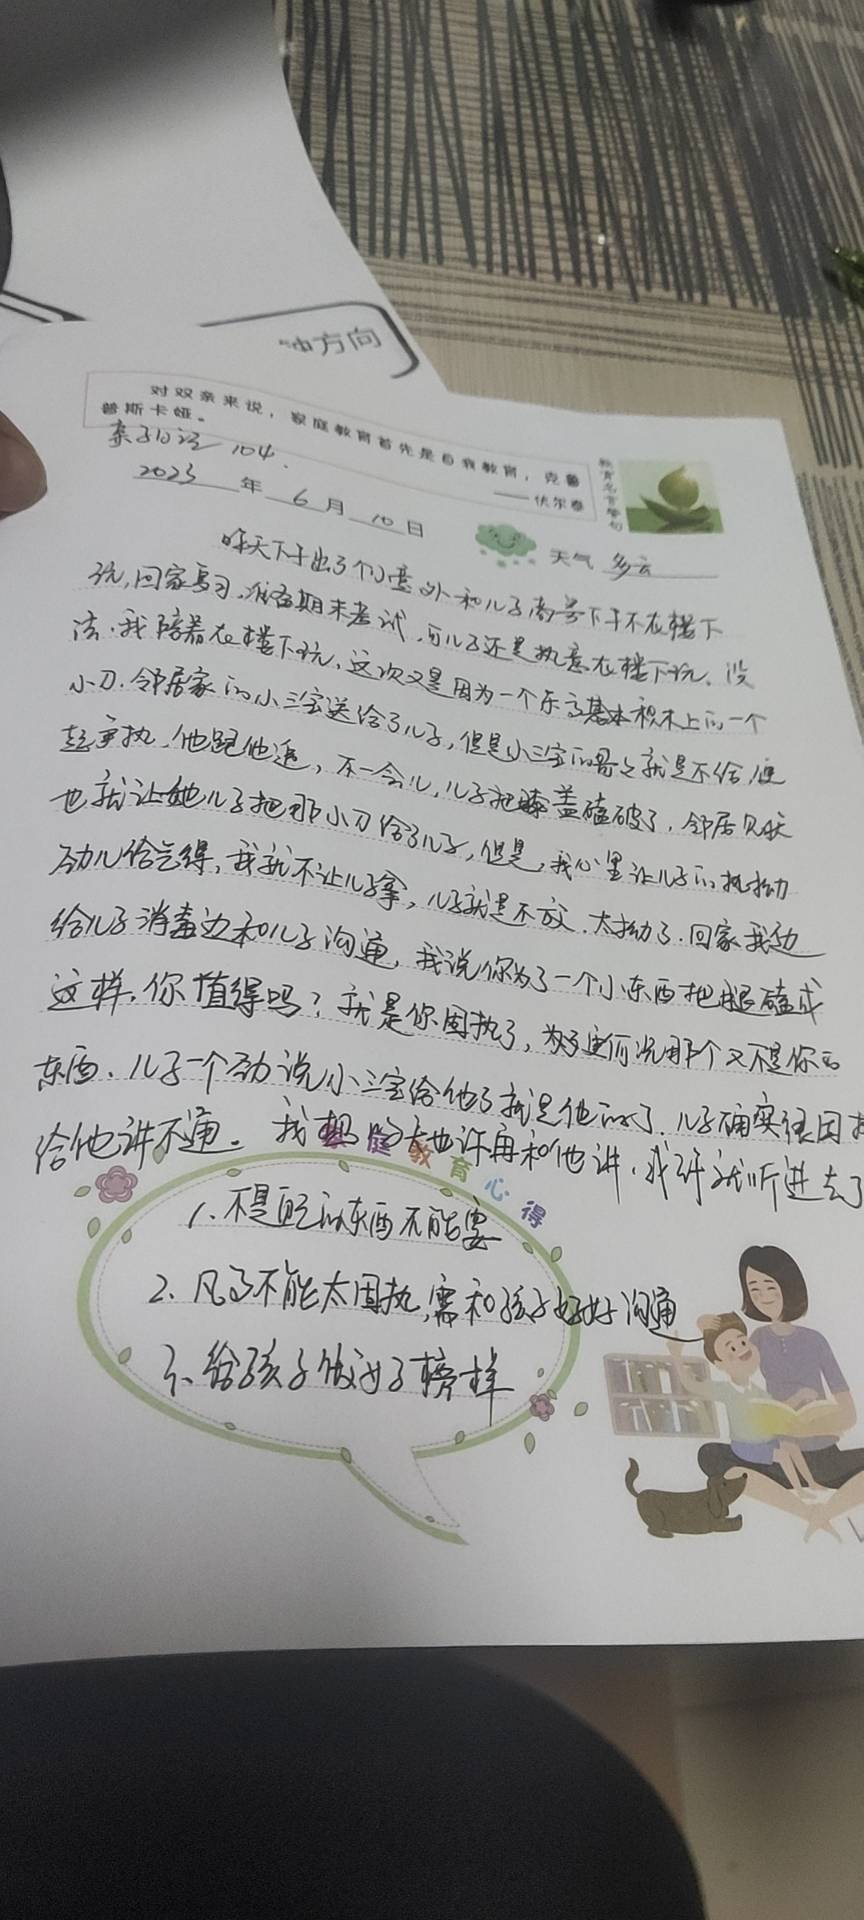 方向
对双亲来说，家庭教育首先是自我教育，克鲁
普斯卡娅。
——伏尔泰
教育名言警句
亲子日记 104.
2023 年 6 月 10 日
天气 多云
昨天下午出了个小意外和儿子商量下午不在楼下
玩,回家复习.准备期末考试,可儿子还是执意在楼下玩、没
法.我陪着在楼下玩、这次又是因为一个乐高基本积木上的一个
小刀.邻居家的小三宝送给了儿子,但是小三宝的哥哥就是不给,便
起争执,他跑他追,不一会儿,儿子把膝盖磕破了,邻居
也就让她儿子把那小刀给了儿子,但是,我心里让儿子的执拗
劲儿给气得,我就不让儿子拿,儿子就是不放.太拗了.回家我边
给儿子消毒边和儿子沟通,我说你为了一个小东西把腿磕成
这样,你值得吗?就是你固执了,那个又不是你的
东西、儿子一个劲说小三宝给他了就是他的了.儿子确实很固执
给他讲不通。我想 也许再和他讲,或许就听进去了
家庭教育心得
1、不是自己的东西不能要
2、凡事不能太固执,需和孩子好好沟通
3、给孩子做好了榜样